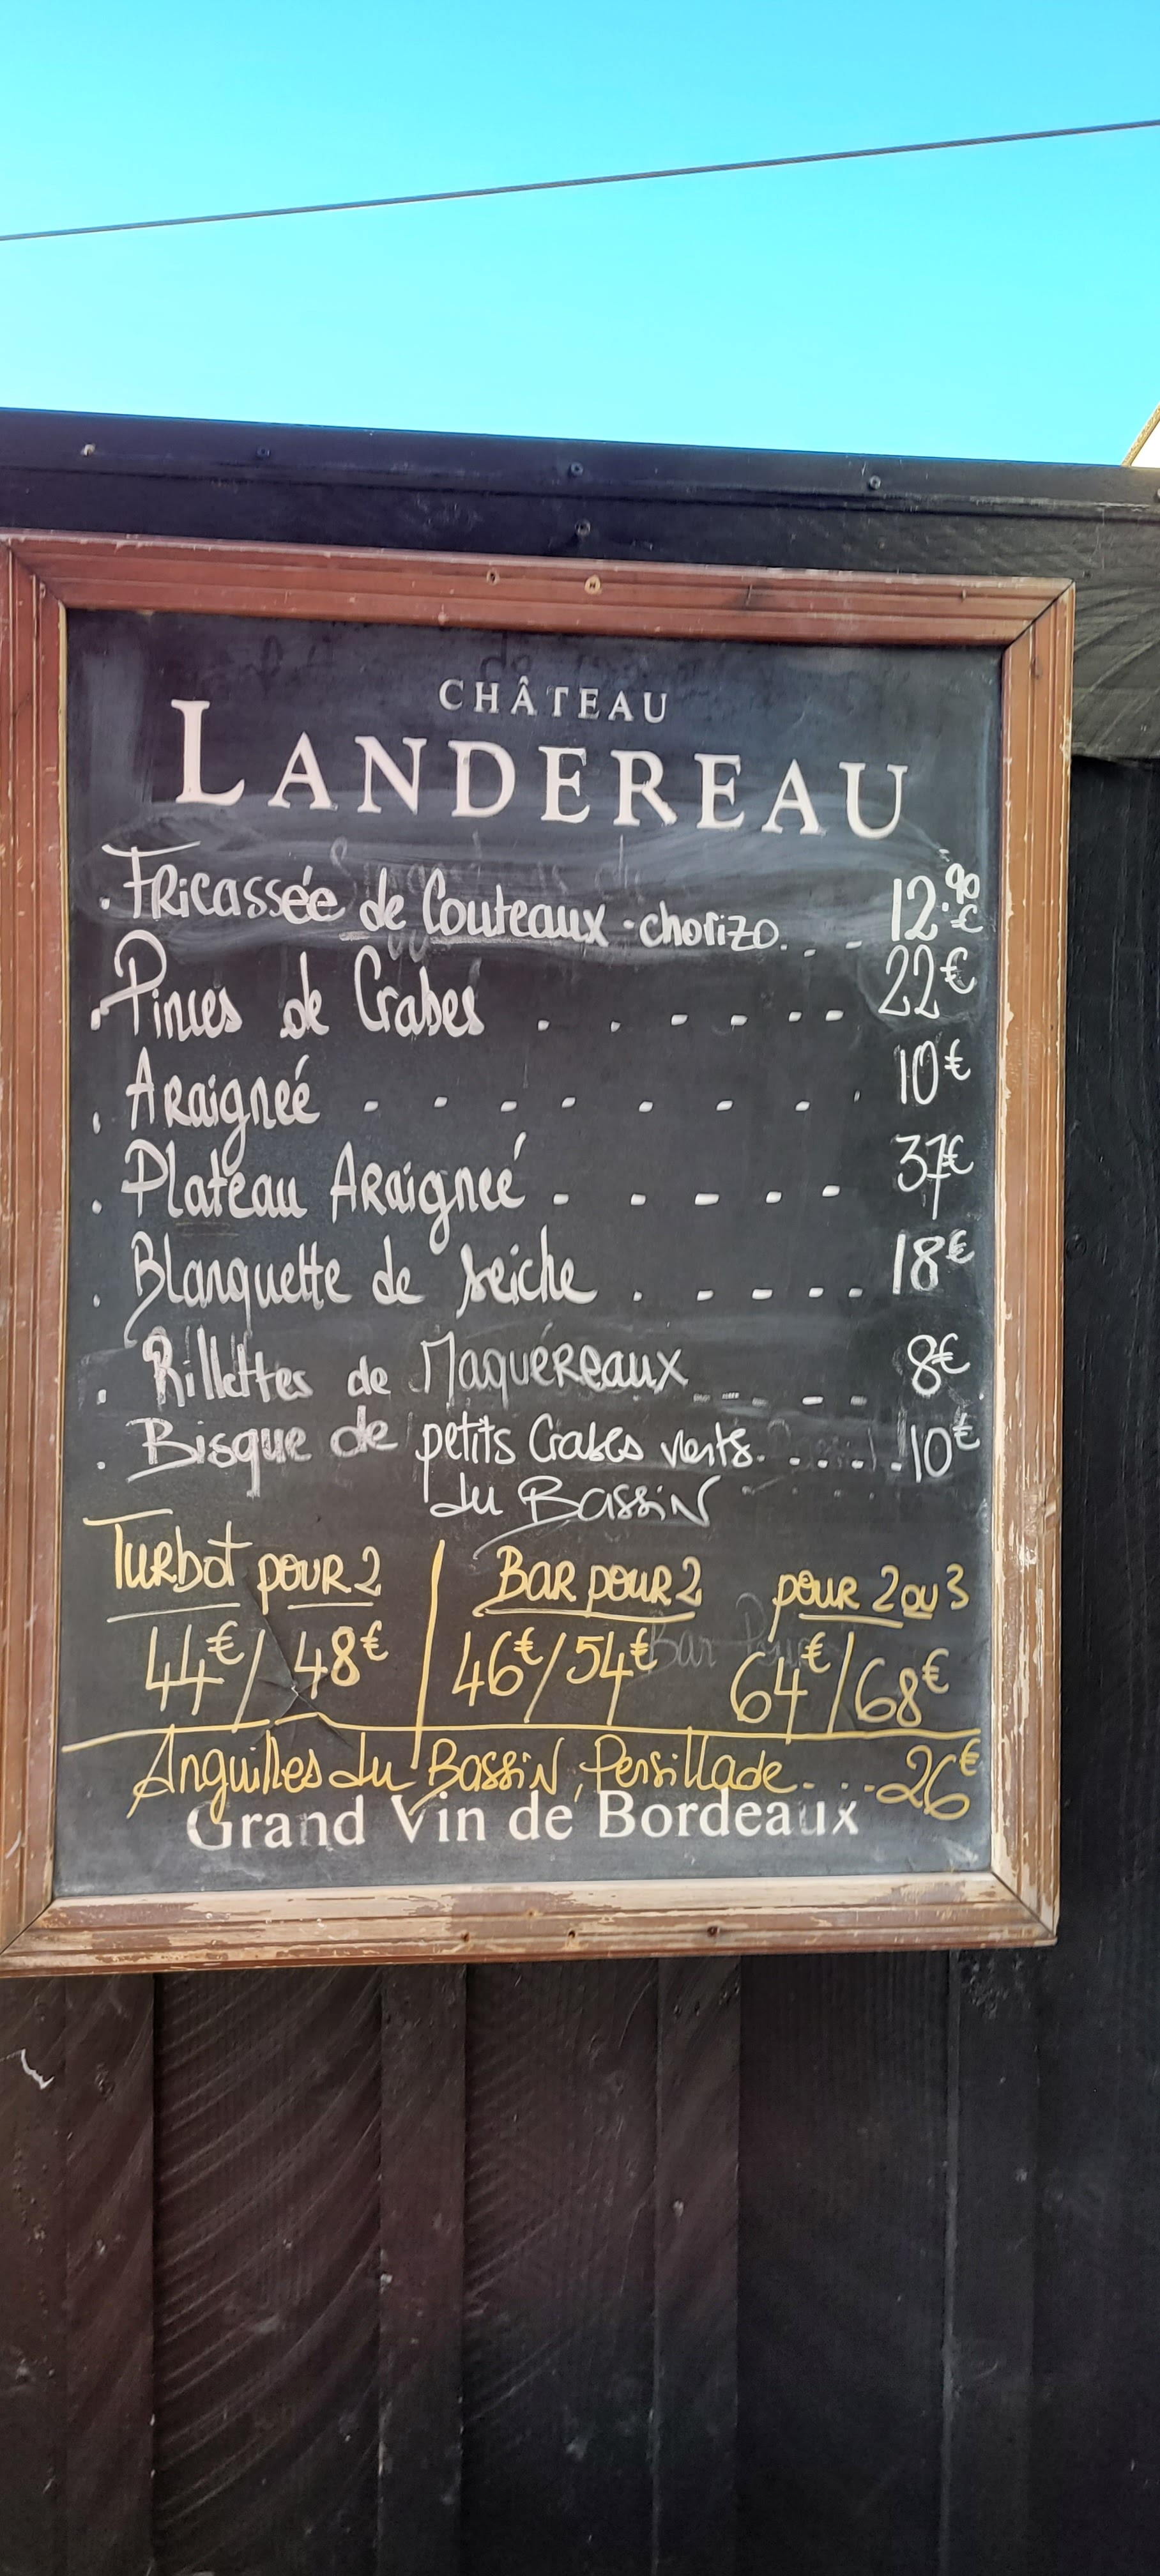 CHÂTEAU
LANDEREAU
. Fricassée de Couteaux - chorizo. . - 12.90€
. Pinces de Crabes . . . . . . . 22€
. Araigneé . . . . . . . . 10€
. Plateau Araigneé . . . . . 37€
. Blanquette de seiche . . . . . 18€
. Rillettes de Maquéreaux - - - - - 8€
. Bisque de petits Crabes verts. . . . . . 10€
du Bassin
Turbot pour 2 | Bar pour 2 pour 2 ou 3
44€ / 48€ | 46€ / 54€ 64€ / 68€
Anguilles du Bassin, Persillade. . . . 26€
Grand Vin de Bordeaux